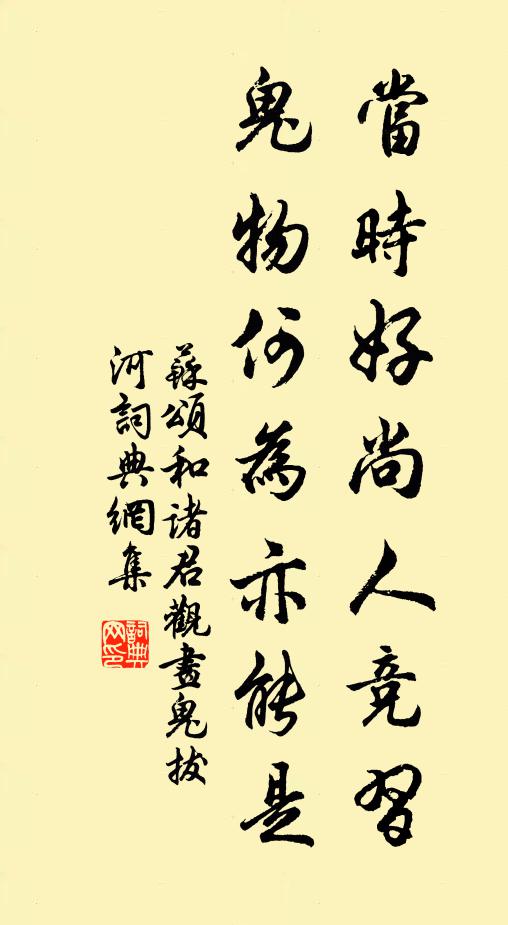 當時好尚人竞習
鬼物何為亦能是
蘇頌和诸君觀畫鬼拔
河詞典網集
詞典網印